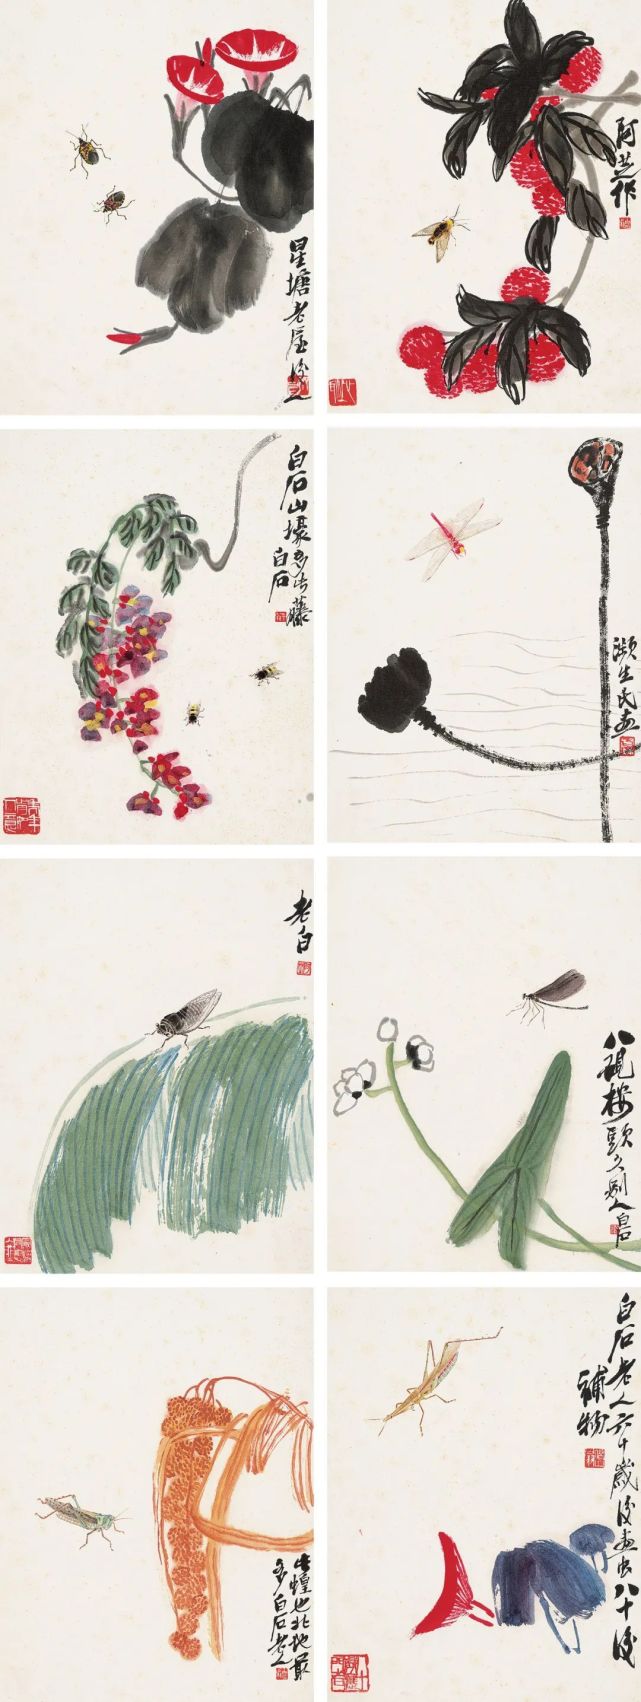 星塘老屋後人
阿芝作
白石山堪多此藤
白石
瀕生民画
老白
八硯楼頭久別人白石
此蝗也北地最
多白石老人
白石老人六十歲後画虫八十後
補物